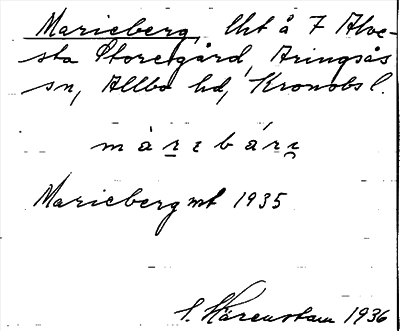 Marieberg, lht å 7 Alve-
sta Storegård, Aringsås
sn, Allbo hd, Kronobs l.
màrɪbárɪ
Marieberg mt 1935
S. Härenstam 1936